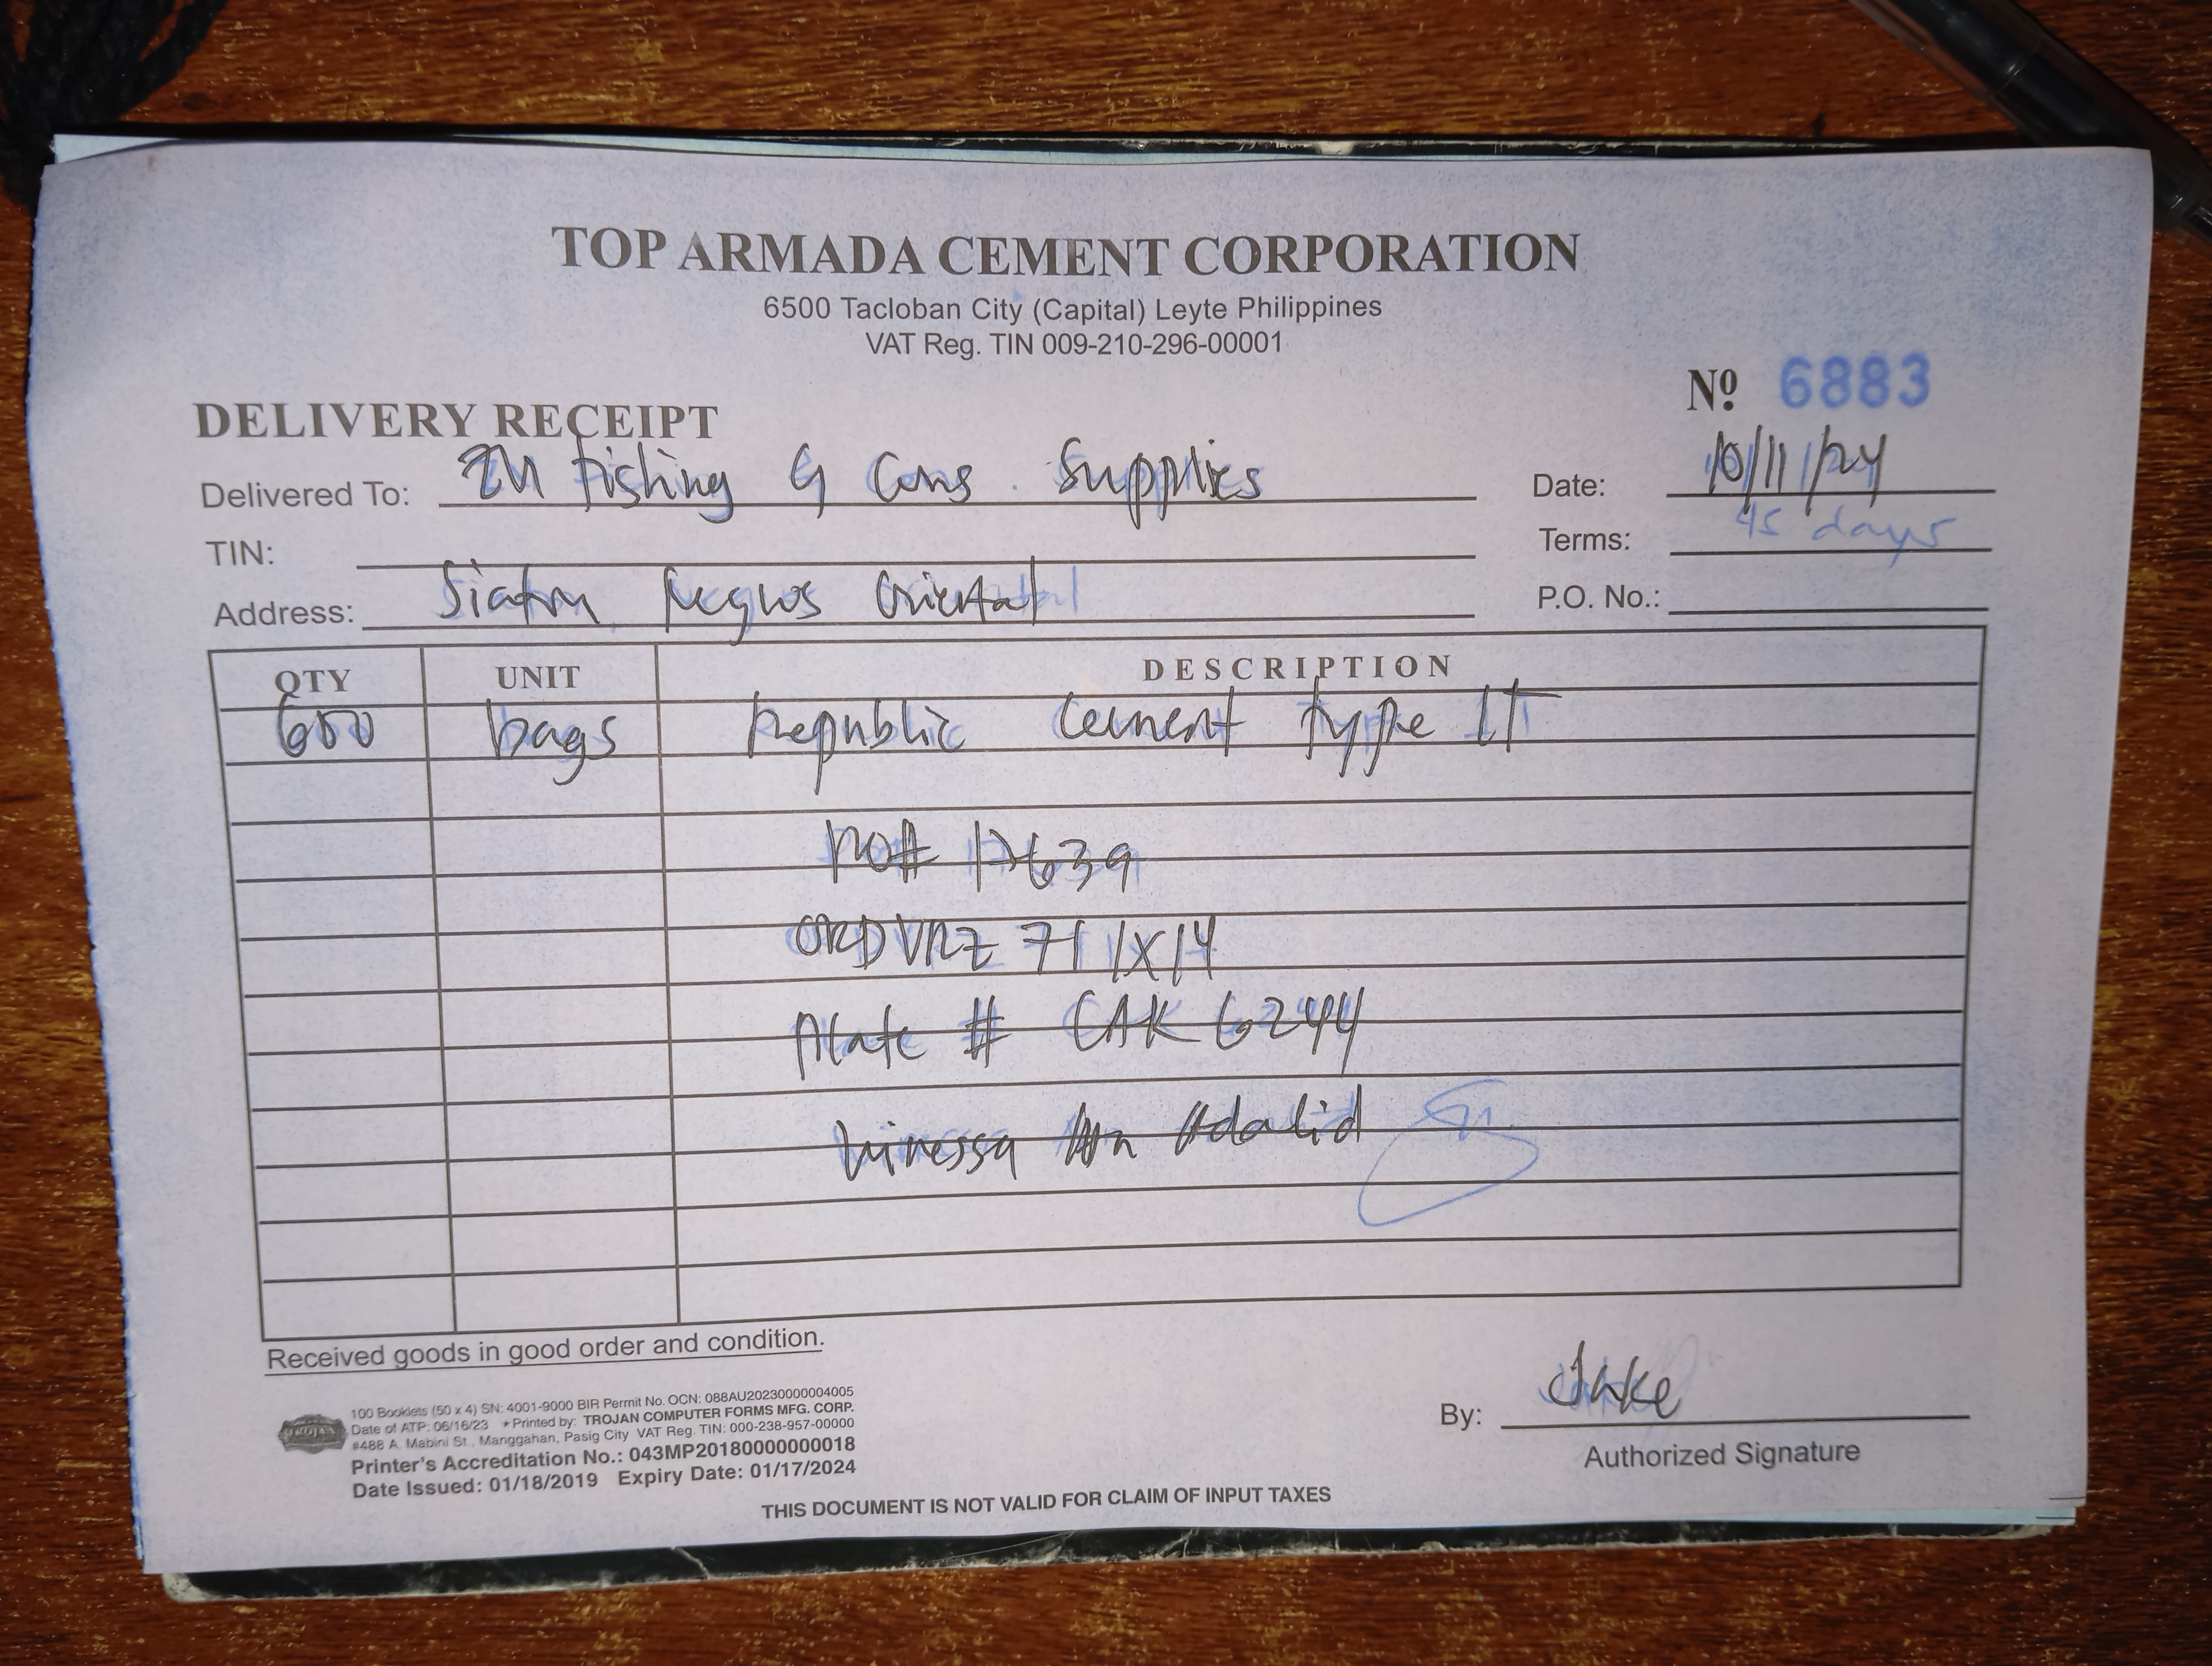 TOP ARMADA CEMENT CORPORATION
6500 Tacloban City (Capital) Leyte Philippines
VAT Reg. TIN 009-210-296-00001
Nº 6883
DELIVERY RECEIPT
Delivered To: ZM Fishing & Cons. Supplies
Date: 10/11/24
TIN:
Terms: 45 days
Address: Negros Oriental
P.O. No.:
QTY UNIT DESCRIPTION
600 bags Republic Cement Type 1T
PO# 17639
Plate # CAK 6244
Vinessa Ann Adalid
Received goods in good order and condition.
100 Booklets (50 x 4) SN: 4001-9000 BIR Permit No. OCN: 088AU20230000004005
Date of ATP: 06/16/23 *Printed by: TROJAN COMPUTER FORMS MFG. CORP.
#488 A. Mabini St., Manggahan, Pasig City VAT Reg. TIN: 000-238-957-00000
Printer's Accreditation No.: 043MP20180000000018
Date Issued: 01/18/2019 Expiry Date: 01/17/2024
TROJAN
By: Jake
Authorized Signature
THIS DOCUMENT IS NOT VALID FOR CLAIM OF INPUT TAXES